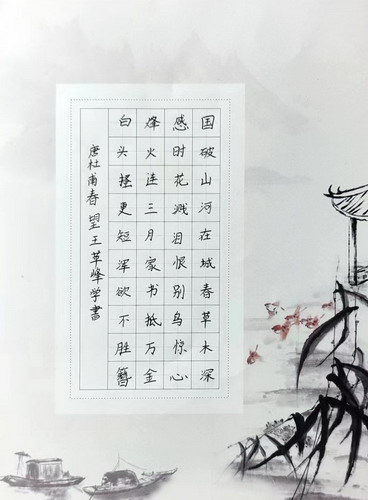 国破山河在城春草木深
感时花溅泪恨别鸟惊心
烽火连三月家书抵万金
白头搔更短浑欲不胜簪
唐杜甫春望王草峰学書